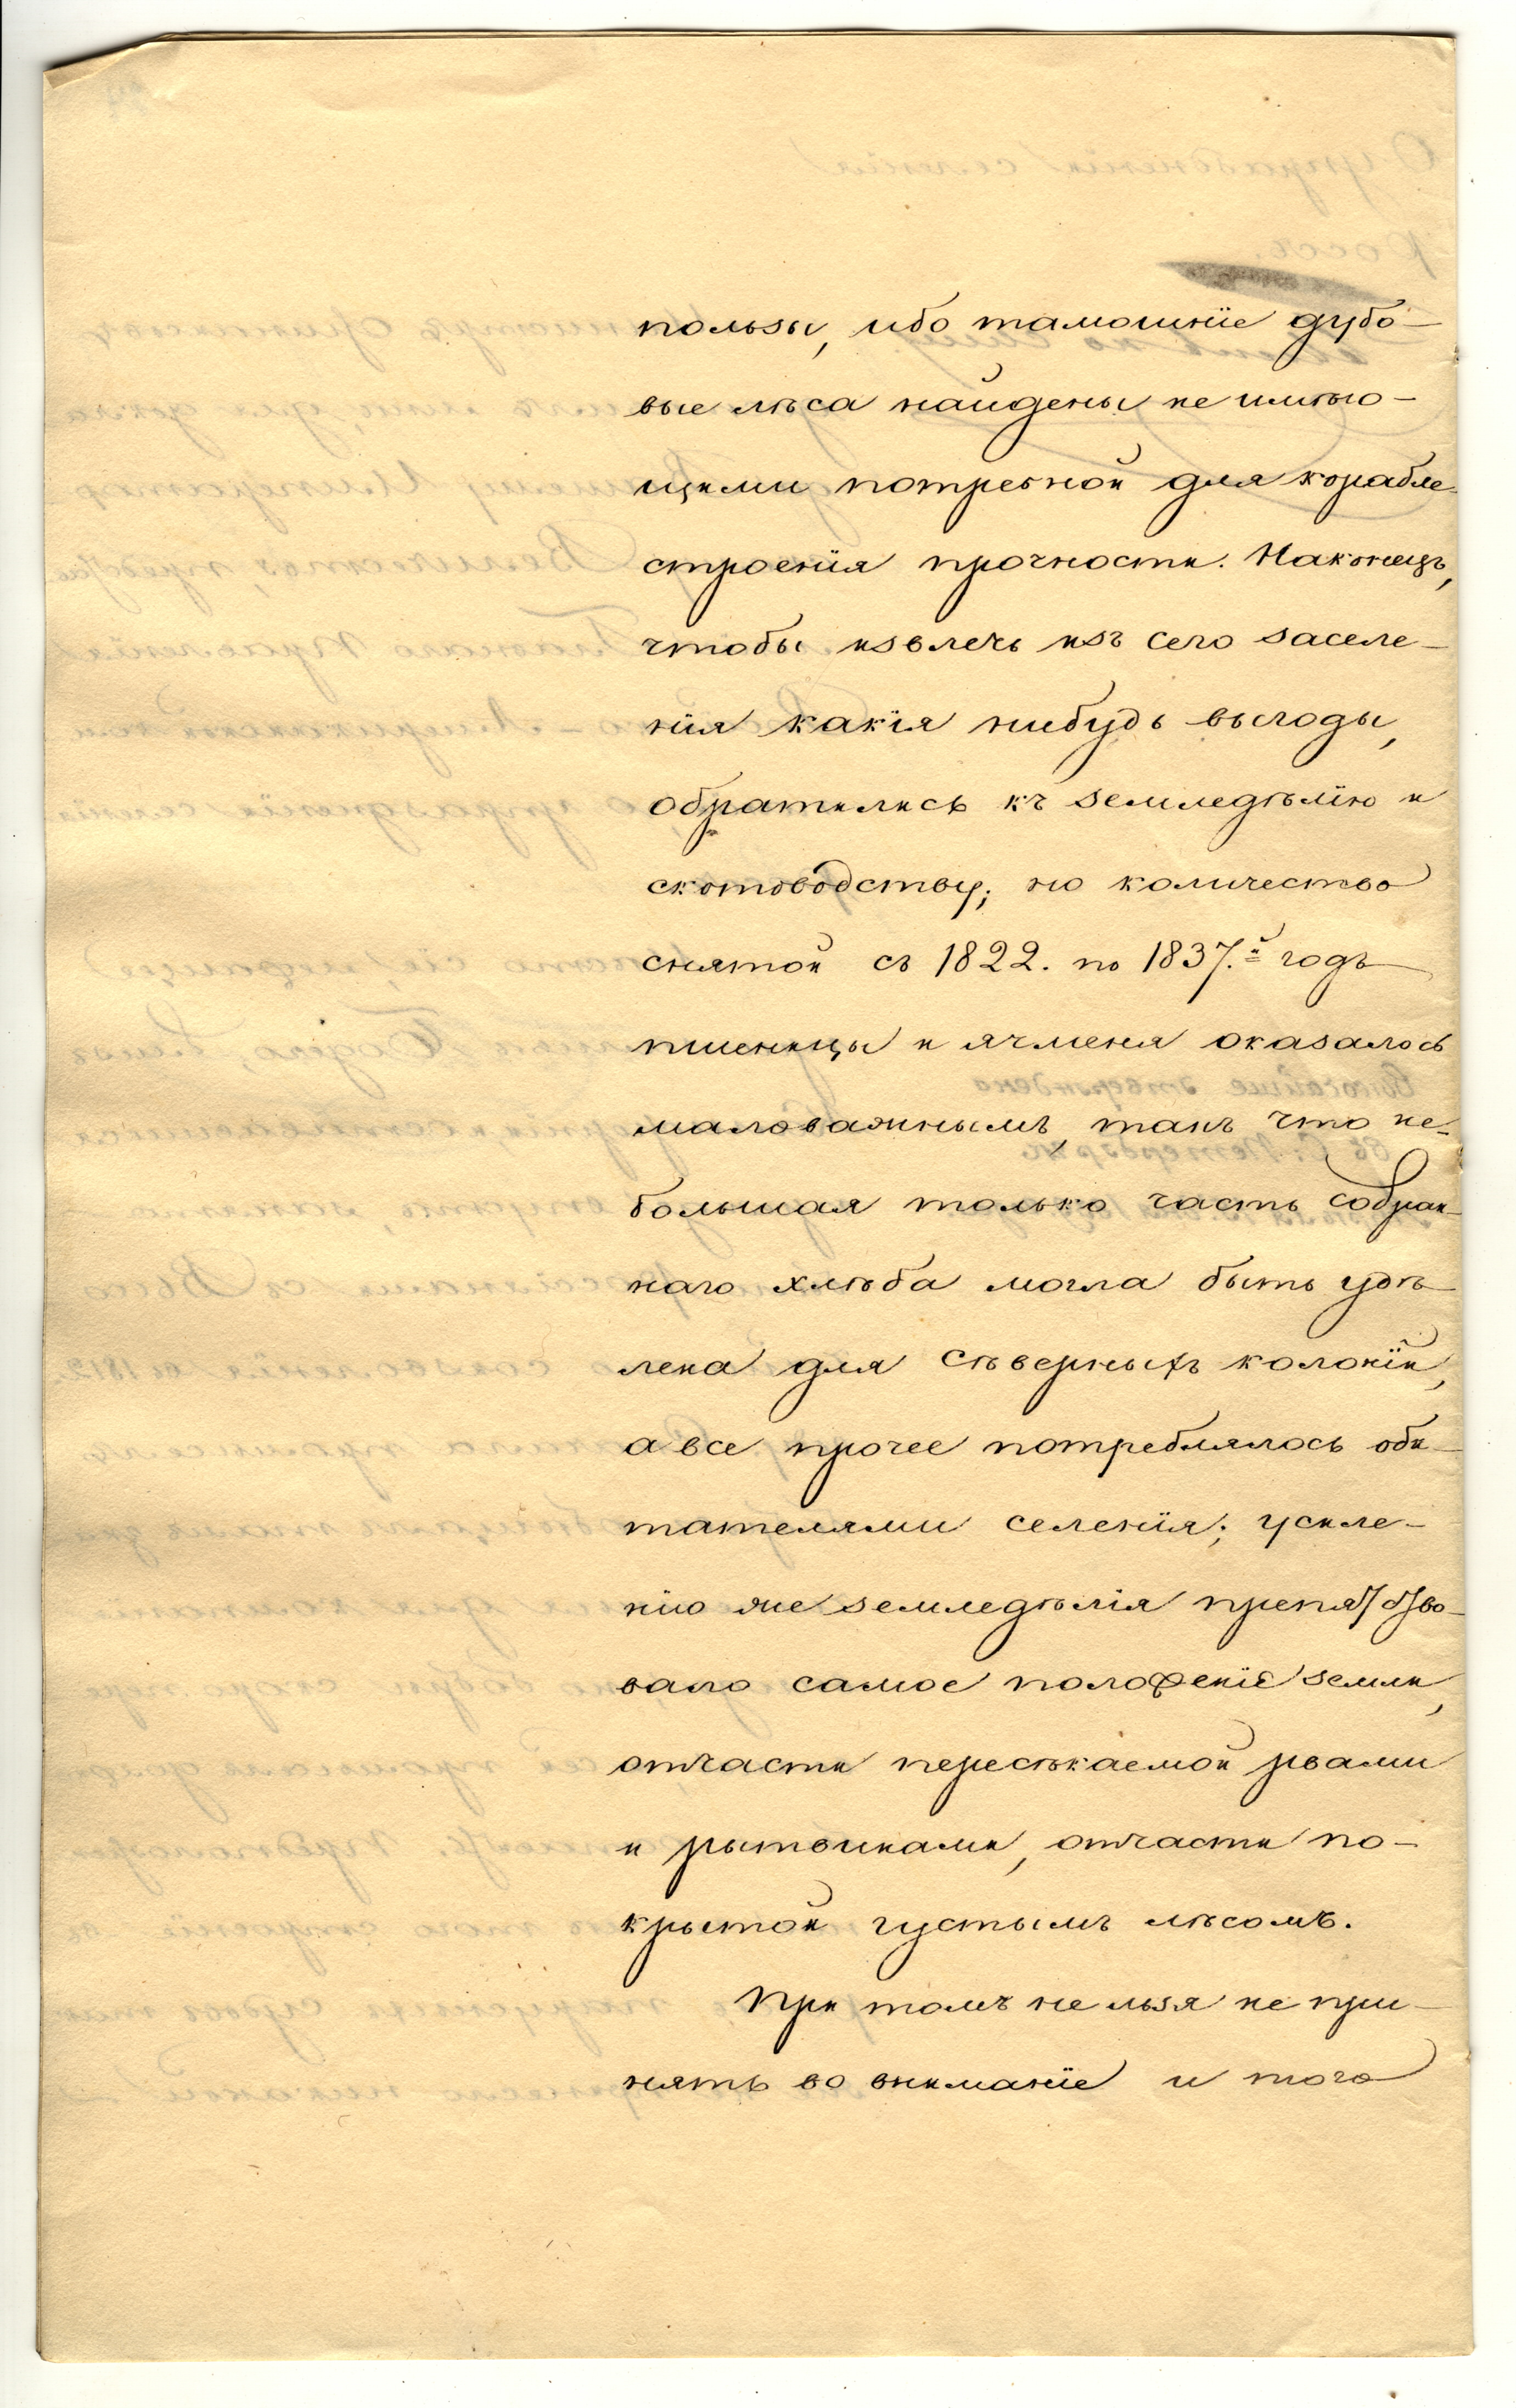 пользы, ибо тамошніе дубо-
вые лѣса найдены не имѣю-
щими потребной для корабле-
строенія прочности. Наконецъ,
чтобы извлечь изъ сего заселе-
нія какія нибудь выгоды,
обратились къ земледѣлію и
скотоводству; но количество
снятой съ 1822. по 1837.й годъ
пшеницы и ячменя оказалось
маловажнымъ, такъ что не-
большая только часть собран-
наго хлѣба могла быть удѣ-
лена для Сѣверныхъ колоній,
а все прочее потреблялось оби-
тателями селенія; усиле-
нію же земледѣлія препятство-
вало самое положеніе земли,
отчасти пересѣкаемой рвами
и рытвинами, отчасти по-
крытой густымъ лѣсомъ.
При томъ не льзя не при-
нять во вниманіе и того